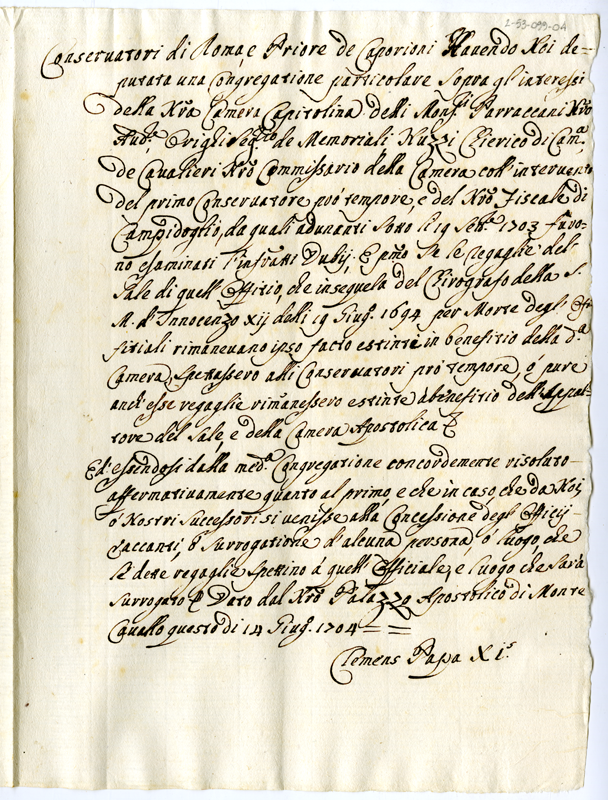 1-53-099-04
Conservatori di Roma, e Priore de Caporioni Havendo Noi de=
putata una Congregatione particolare sopra gl'interessi
della Nrã Camera Capitolina delli Monsri Parracciani Nrõ
Audre Origlij Segrio de Memoriali Nuzzi Chierico di Camã
de Cavalieri Nrõ Commissario della Camera coll'intervento
del primo Conservatore pró tempore, e del Nrõ Fiscale di
Campidoglio, da quali adunanti sotto li 19 Sebre 1703 furo-
no esaminati l'infratti Dubij. E pmo Se le regaglie del
Sale di quell'Offitio, che in seguela del Chirografo della S.
M. d'Innocenzo xij delli 19 Giugo 1694 per Morte degl'Of
fitiali rimanevano ipso facto estinte in benefitio della da
Camera, Spettassero alli Conservatori pró tempore, ó pure
anch'esse regaglie rimanessero estinte á benefitio dell'Appal=
tatore del Sale, e della Camera Apostolica
Ed essendosi dalla meda Congregatione concordemente risoluto
affermativamente quanto al primo, e che in caso, che da Noi,
ó Nostri Successori si venisse alla Concessione degl'Officij
vaccanti, ó surrogatione d'alcuna persona, ó luogo che
le dette regaglie spettino á quell'Officiale, e luogo che sará
surrogato Dato dal Nrõ Palazzo Apostolico di Monte
Cavallo questo di 14 Giugo 1704 = =
Clemens Papa XIs